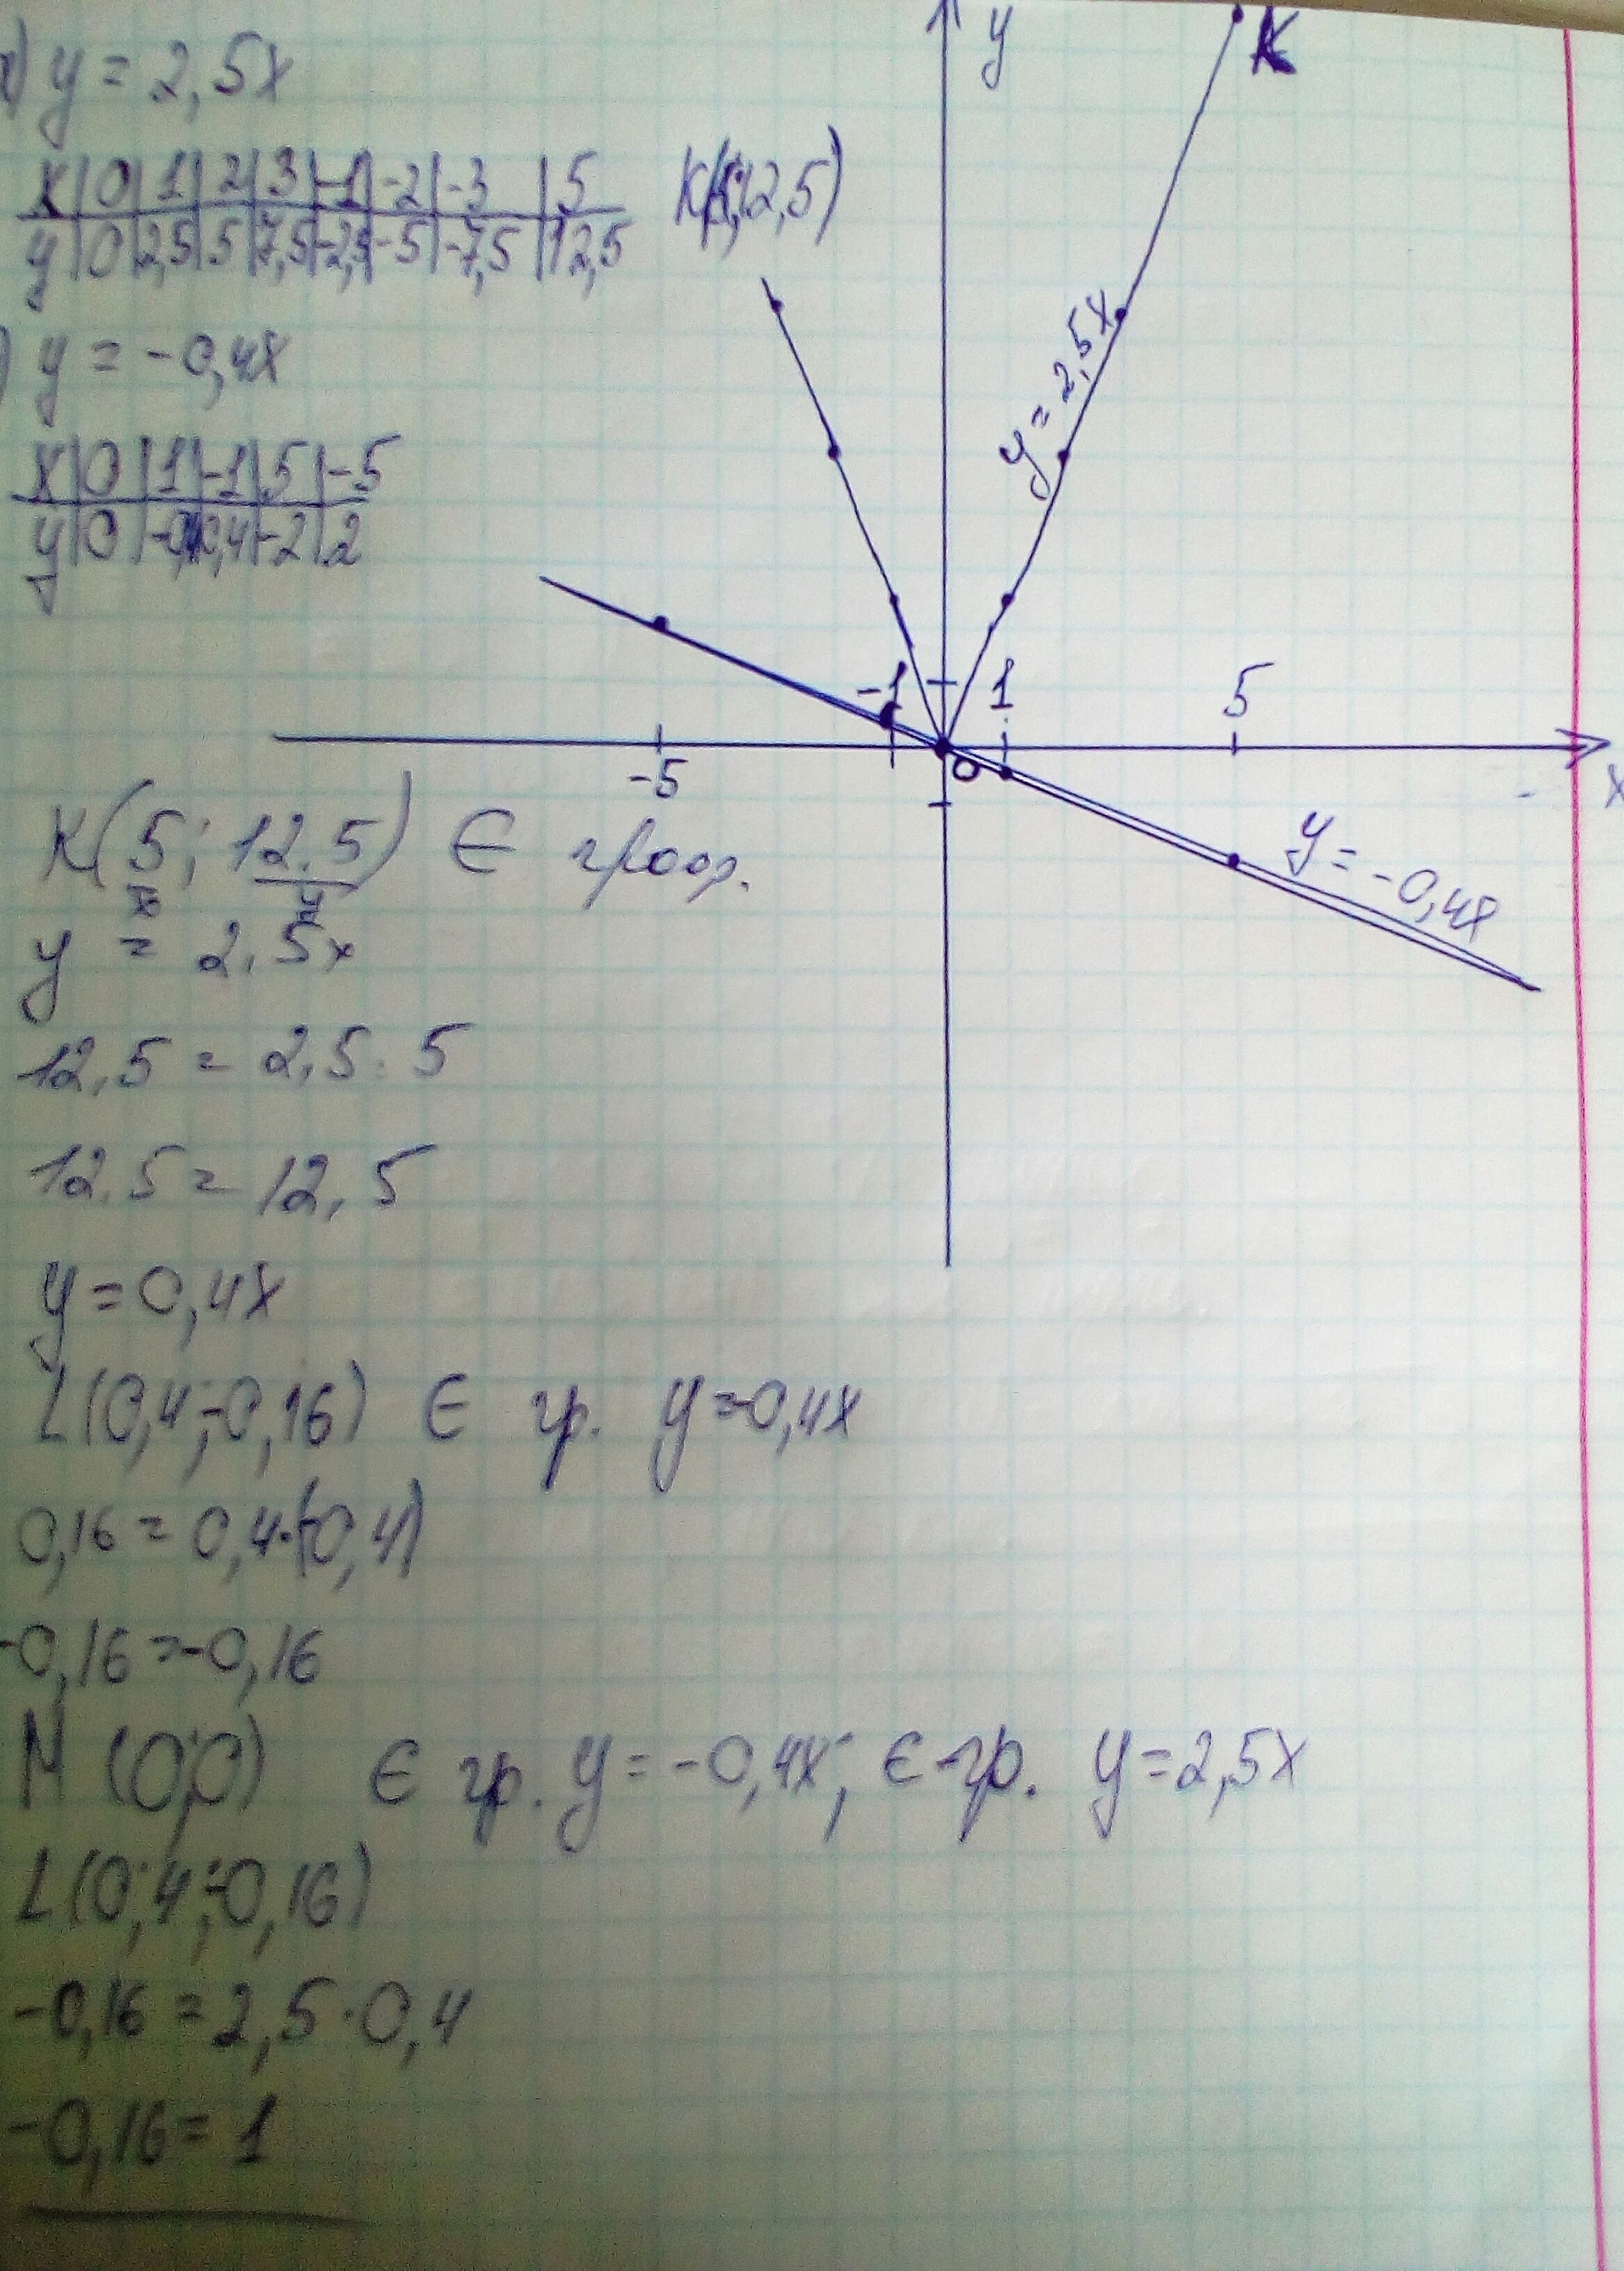 y = 2,5x
x | 0 | 1 | 2 | 3 | -1 | -2 | -3 | 5
y | 0 | 2,5 | 5 | 7,5 | -2,5 | -5 | -7,5 | 12,5
K(5;12,5)
y = -0,4x
x | 0 | 1 | -1 | 5 | -5
y | 0 | -0,4 | 0,4 | -2 | 2
y
K
y = 2,5x
-1
1
5
-5
0
x
y = -0,4x
K(5; 12,5) ∈
x y
y = 2,5x
12,5 = 2,5 · 5
12,5 = 12,5
y = 0,4x
L(0,4;-0,16) ∈ гр. y=-0,4x
0,16 = 0,4·(-0,4)
-0,16 = -0,16
(0;0) ∈ гр. y = -0,4x; ∈ гр. y = 2,5x
L(0,4;-0,16)
-0,16 = 2,5 · 0,4
-0,16 = 1